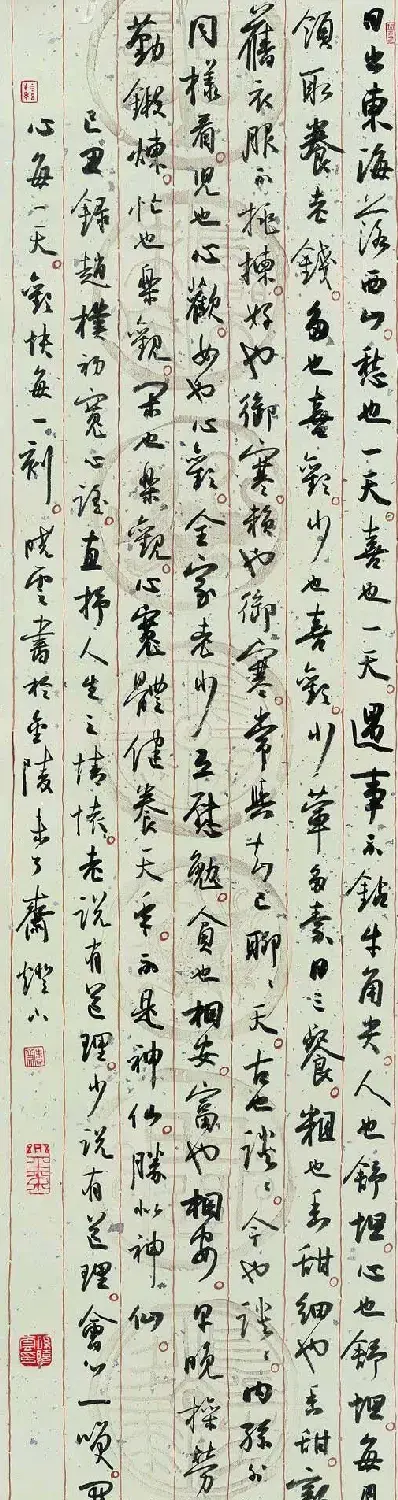 日出東海落西山愁也一天喜也一天遇事不鉆牛角尖人也舒坦心也舒坦每月
領取養老錢多也喜歡少也喜歡少葷多素日三餐粗也香甜細也香甜新
舊衣服不挑揀好也御寒賴也御寒常與知己聊聊天古也談談今也談談內孫外
同樣看兒也心歡女也心歡全家老少互慰勉貧也相安富也相安早晚操勞
勤鍛煉忙也樂觀閑也樂觀心寬體健養天年不是神仙勝似神仙
己丑錄趙樸初寬心謠直抒人生之情懷老說有道理少說有道理會心一咲開
心每一天歡快每一刻曉雲書於金陵未了齋燈下